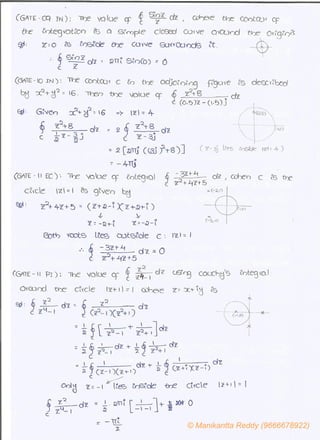 (GATE-09 IN): The value of ∮c sinz/z dz, where the contour of
the integration is a simple closed curve around the origin is
Sol: z=0 is inside the curve surrounds it.
∴ ∮c sinz/z dz = 2πi sin(0) = 0
(GATE-10 IN): The contour C in the adjoining figure is described
by x²+y²=16. Then the value of ∮c z²+8/(0.5)z-(1.5)j dz
Sol: Given x²+y²=16 => |z|=4
∮c z²+8/(z/2-3/2j) dz = 2∮c z²+8/(z-3j) dz
= 2[2πj((3j)²+8)] (z=3j lies inside |z|=4)
= -4πj
(GATE-11 EC): The value of integral ∮c -3z+4/z²+4z+5 dz, when c is the
circle |z|=1 is given by
Sol: z²+4z+5 = (z+2-i)(z+2+i)
z=-2+i z=-2-i
Both roots lies outside c: |z|=1
∴ ∮c -3z+4/z²+4z+5 dz = 0
(GATE-11 PI): The value of ∮c z²/z⁴-1 dz using cauchy's integral
around the circle |z+1|=1 where z=x+iy is
Sol: ∮c z²/z⁴-1 dz = ∮c z²/(z²-1)(z²+1) dz
= 1/2 ∮c [1/z²-1 + 1/z²+1] dz
= 1/2 ∮c 1/z²-1 dz + 1/2 ∮c 1/z²+1 dz
= 1/2 ∮c 1/(z-1)(z+1) dz + 1/2 ∮c 1/(z+i)(z-i) dz
Only z=-1 lies inside the circle |z+1|=1
∮c z²/z⁴-1 dz = 1/2 2πi [1/-1-1] + 0
= -πi/2
© Manikantta Reddy (9666676922)